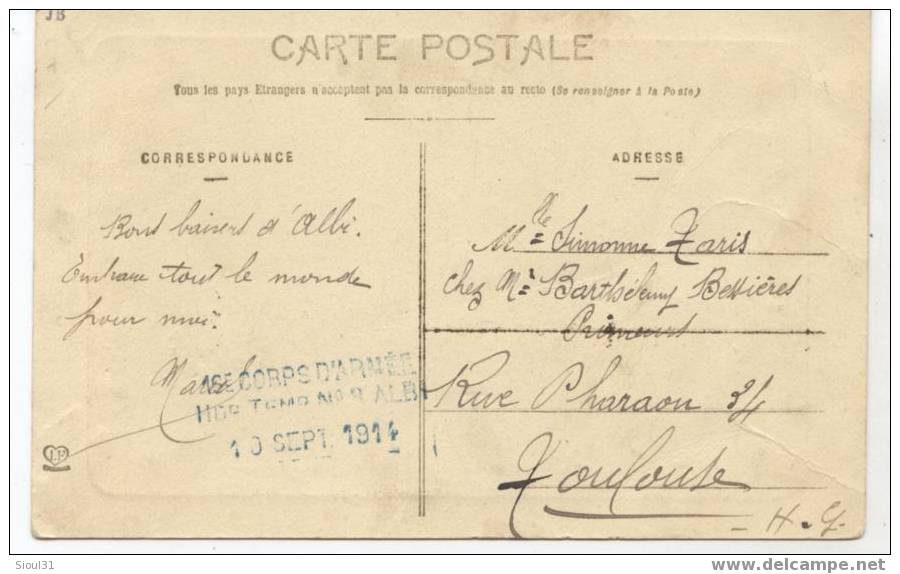 JB
CARTE POSTALE
Tous les pays Etrangers n'acceptent pas la correspondance au recto (Se renseigner à la Poste)
CORRESPONDANCE
Bons baisers d'Albi.
Embrasse tout le monde
pour moi.
Marcel
16E CORPS D'ARMÉE
HOP. TEMP. No 8 ALBI
10 SEPT. 1914
ADRESSE
Mlle Simonne Taris
chez Mr Barthélemy Bessières
Primeurs
Rue Pharaon 34
Toulouse
H-G-
Sioul31
delcampe.net